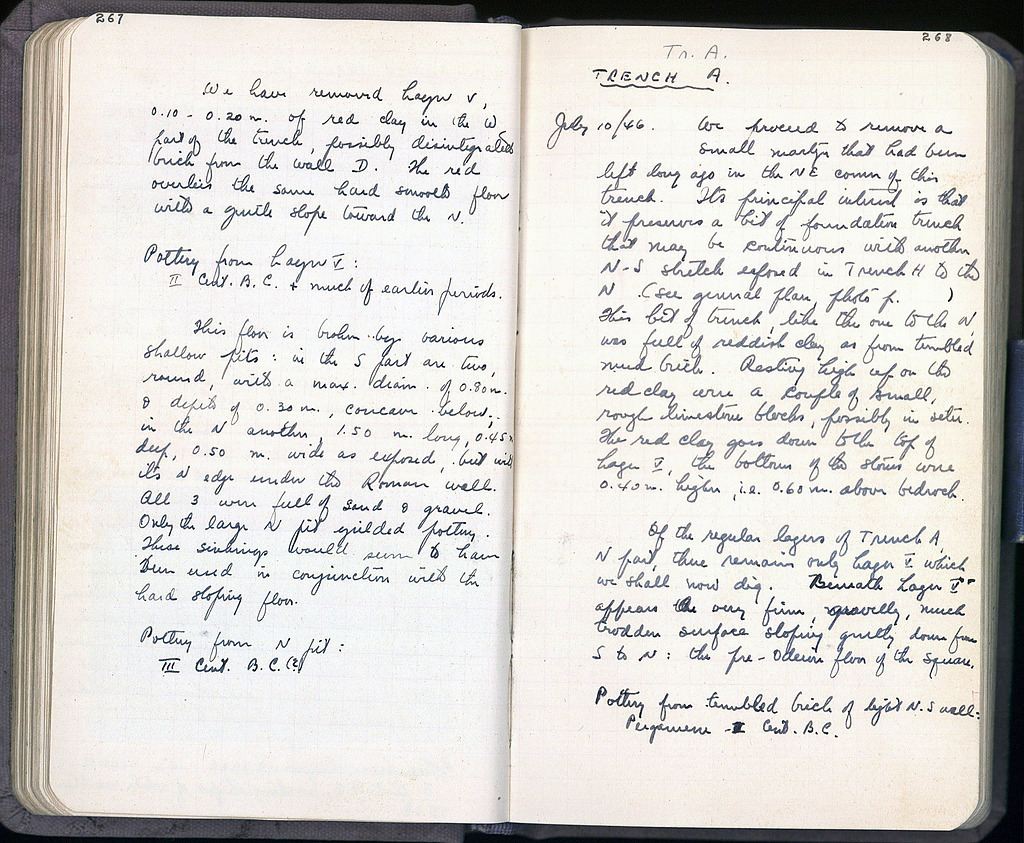 267
We have removed Layer V,
0.10 - 0.20 m. of red clay in the W
part of the trench, possibly disintegrated
brick from the wall D. The red
overlies the same hard smooth floor
with a gentle slope toward the N.
Pottery from Layer V:
II Cent. B.C. + much of earlier periods.
This floor is broken by various
shallow pits: in the S part are two,
round, with a max. diam. of 0.80 m.
& depth of 0.30 m., concave below;
in the N another, 1.50 m. long, 0.45 m
deep, 0.50 m. wide as exposed, but with
its N edge under the Roman wall.
All 3 were full of sand & gravel.
Only the large N pit yielded pottery.
These sinkings would seem to have
been used in conjunction with the
hard sloping floor.
Pottery from N pit:
III Cent. B.C. (?)
268
Tr. A.
TRENCH A.
July 10/46. We proceed to remove a
small martyr that had been
left long ago in the NE corner of this
trench. Its principal interest is that
it preserves a bit of foundation trench
that may be continuous with another
N-S stretch exposed in Trench H to the
N. (see general plan, photo p. )
This bit of trench, like the one to the N,
was full of reddish clay as from tumbled
mud brick. Resting high up on the
red clay were a couple of small,
rough limestone blocks, possibly in situ.
The red clay goes down to the top of
Layer V, the bottoms of the stones were
0.40 m. higher, i.e. 0.60 m. above bedrock.
Of the regular layers of Trench A,
N part, there remains only Layer V which
we shall now dig. Beneath Layer V
appears the very firm, gravelly, much
trodden surface sloping gently down from
S to N: the pre-Odeion floor of the Square.
Pottery from tumbled brick of light N.S wall:
Pergamene - II Cent. B.C.